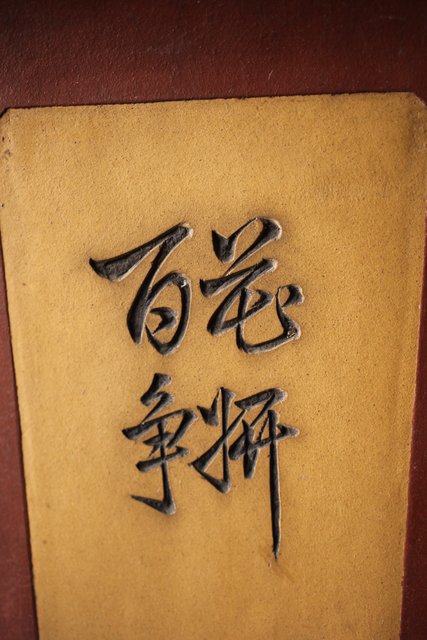 百花
争妍